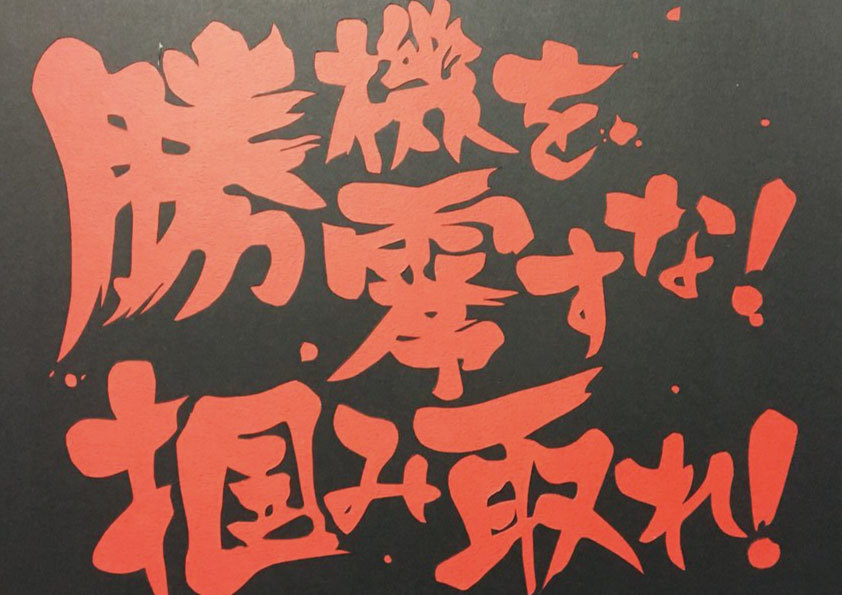 勝機を零すな!
掴み取れ!